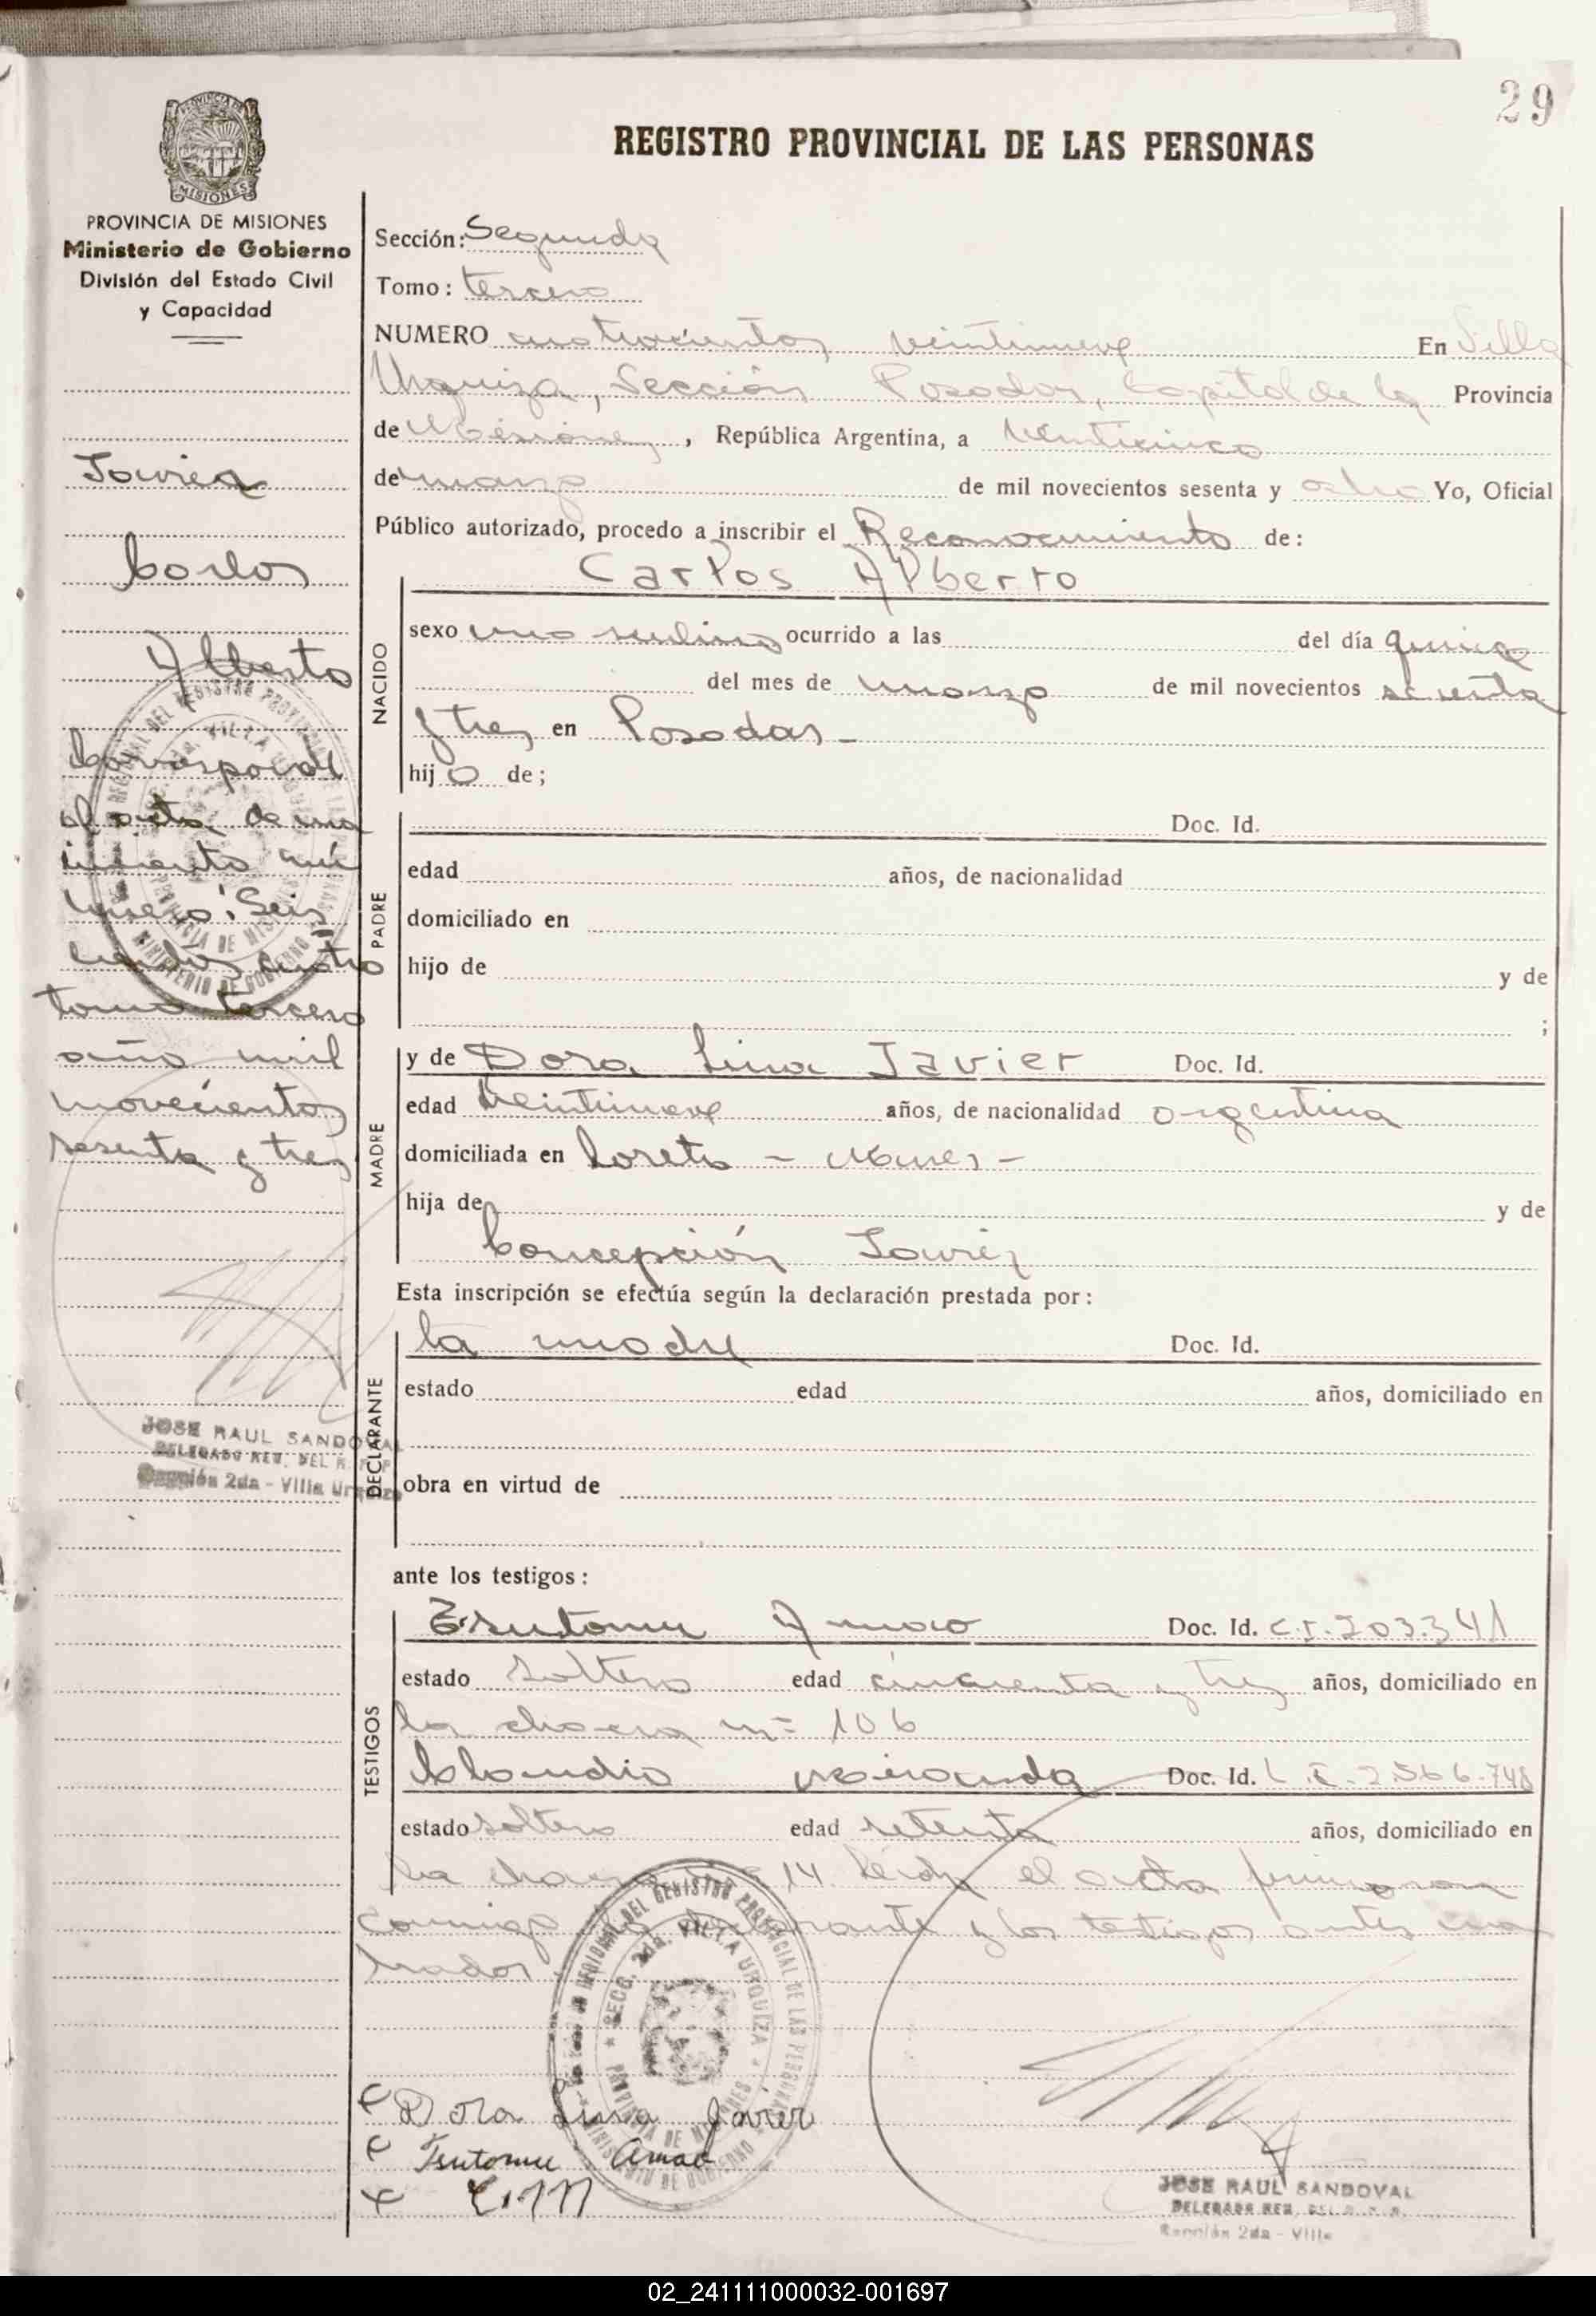 29
REGISTRO PROVINCIAL DE LAS PERSONAS
PROVINCIA DE MISIONES
Ministerio de Gobierno
División del Estado Civil
y Capacidad
Javier
Carlos
Alberto
Corresponde
al acta de na
cimiento nú
mero: Seis
cientos cuatro
tomo tercero
año mil
novecientos
sesenta y tres
JOSE RAUL SANDOVAL
DELEGADO REG. DEL R. P. P.
Sección 2da - Villa Urquiza
Sección: Segunda
Tomo: tercero
NUMERO cuatrocientos veintinueve En Villa
Urquiza, Sección Posadas, Capital de la Provincia
de Misiones, República Argentina, a veinticinco
de marzo de mil novecientos sesenta y ocho Yo, Oficial
Público autorizado, procedo a inscribir el Reconocimiento de:
Carlos Alberto
NACIDO
sexo masculino ocurrido a las del día quince
del mes de marzo de mil novecientos sesenta
y tres en Posadas -
hijo de;
PADRE
Doc. Id.
edad años, de nacionalidad
domiciliado en
hijo de y de
;
MADRE
y de Dora Lina Javier Doc. Id.
edad veintinueve años, de nacionalidad argentina
domiciliada en Loreto - Mnes -
hija de y de
Concepción Javier
Esta inscripción se efectúa según la declaración prestada por:
DECLARANTE
la madre Doc. Id.
estado edad años, domiciliado en
obra en virtud de
ante los testigos:
TESTIGOS
Tsutomu Amao Doc. Id. C.I. 203.341
estado soltero edad cincuenta y tres años, domiciliado en
la chacra nº 106
Claudio Miranda Doc. Id. L.E. 2.566.748
estado soltero edad setenta años, domiciliado en
la chacra 14. Leída el acta firmaron
conmigo la declarante y los testigos antes nom
brados
SECC. 2da. VILLA URQUIZA
PROVINCIA DE MISIONES
Dora Lina Javier
Tsutomu Amao
C.M
JOSE RAUL SANDOVAL
DELEGADO REG. DEL R. P. P.
Sección 2da - Villa
02_241111000032-001697